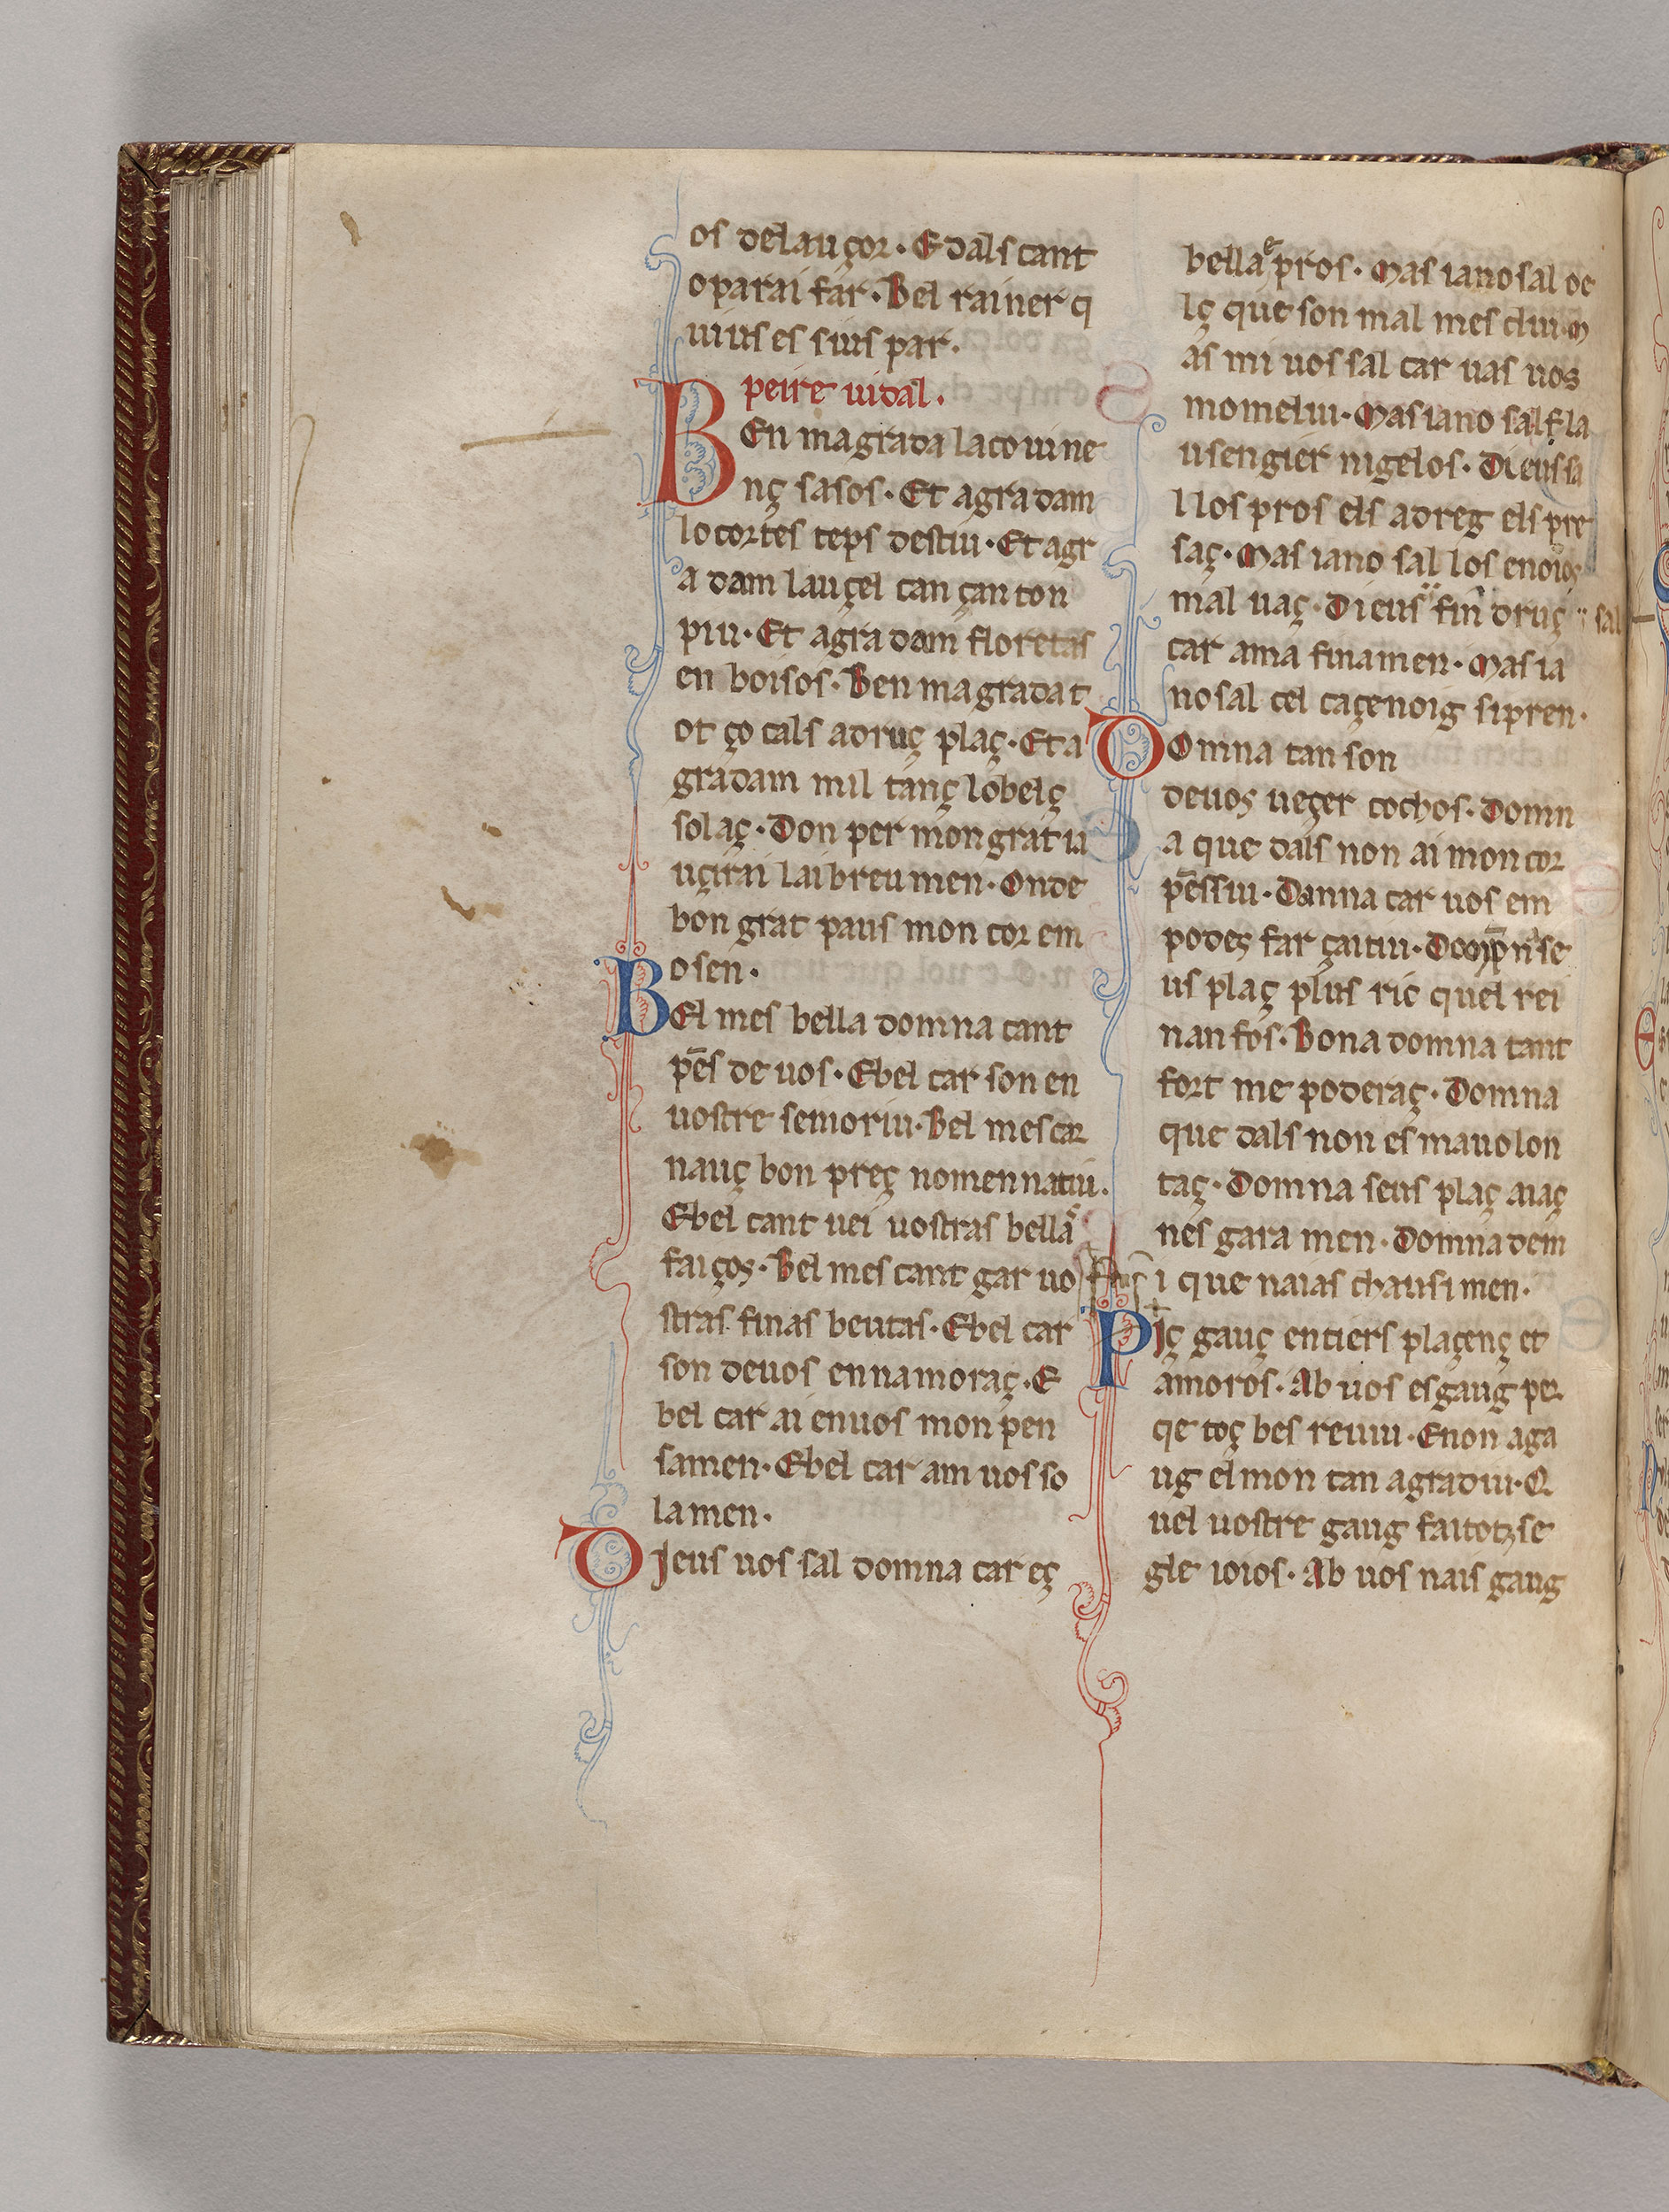 os delauçor. Edals cant
oparai far. Bel rainer q
uiuſ es ſiuſ par.
peire uidal.
BEn magrada lacouine
nç ſaſos. Et agradam
locortes teps deſtiu. Et agr
a dam lauçel can çan ton
piu. Et agra dam floretas
en boiſos. Ben magrada t
ot ço cals adruç plaç. Et a
gradam mil tanç lobelç
ſolaç. Don per mon grat ia
uçirai lai breumen. On de
bon grat paus mon cor em
oſen.
BEl mes bella domna cant
pēs de uos. Ebel car ſon en
uoſtre ſemoriu. Bel meſcar
nauç bon preç nomennatiu.
Ebel cant uei uoſtras bellaſ
faiços. Bel mes cant gar uo
ſtras finas beutas. Ebel car
ſon deuos ennamoraç. E
bel car ai enuos mon pen
ſamen. Ebel car am uosſo
lamen.
DJeus uos ſal domna car eç
bella e pros. Mas iano ſal de
lç que ſon mal mes cliu. M
as mi uos ſal car uas uos
momeliu. Mas iano ſalf la
uſengier nigelos. Dieus ſa
l los pros els adreg els pre
ſaç. Mas iano ſal los enoios
mal uaç. Dieus fin druç ſal
car ama finamen. Mas ia
noſal cel caçenoig ſipren.
DOmna tan ſon
deuos ueçer cochos. Domn
a que dals non ai mon cor
pēſſiu. Danna car uos em
podeç far çaitiu. Domp̄n ſe
us plaç plus ric quel rei
nanfos. Bona domna tant
fort me poderaç. Domna
que dals non es mauolon
taç. Domna ſeus plaç aiaç
nes gara men. Domna dem
i que naias chauſimen.
PJç gauç entiers plaçenç et
amoros. Ab uos es gaug per
qe toç bes reuiu. Enon aga
ug elmon tan agradiu. Q
uel uoſtre gaug fai totz ſe
gle ioios. Ab uos nais gaug